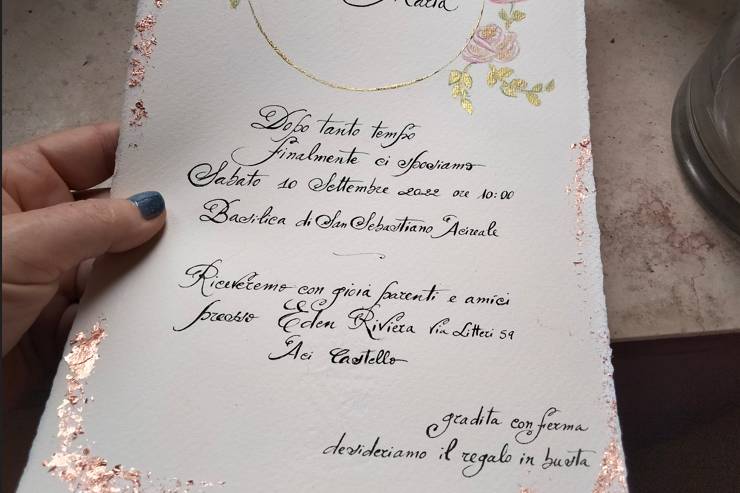 Maria
Dopo tanto tempo
Finalmente ci sposiamo
Sabato 10 Settembre 2022 ore 10:00
Basilica di San Sebastiano Acireale
Riceveremo con gioia parenti e amici
presso Eden Riviera Via Litteri 59
Aci Castello
gradita conferma
desideriamo il regalo in busta